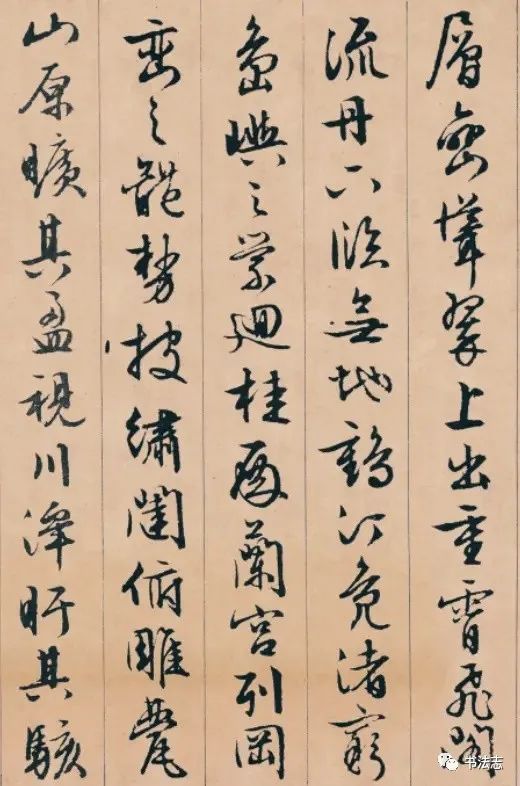 層巒聳翠上出重霄飛閣
流丹下臨無地鶴汀鳧渚窮
島嶼之縈迴桂殿蘭宮列岡
巒之體勢披繡闥俯雕甍
山原曠其盈視川澤盱其駭
书法志